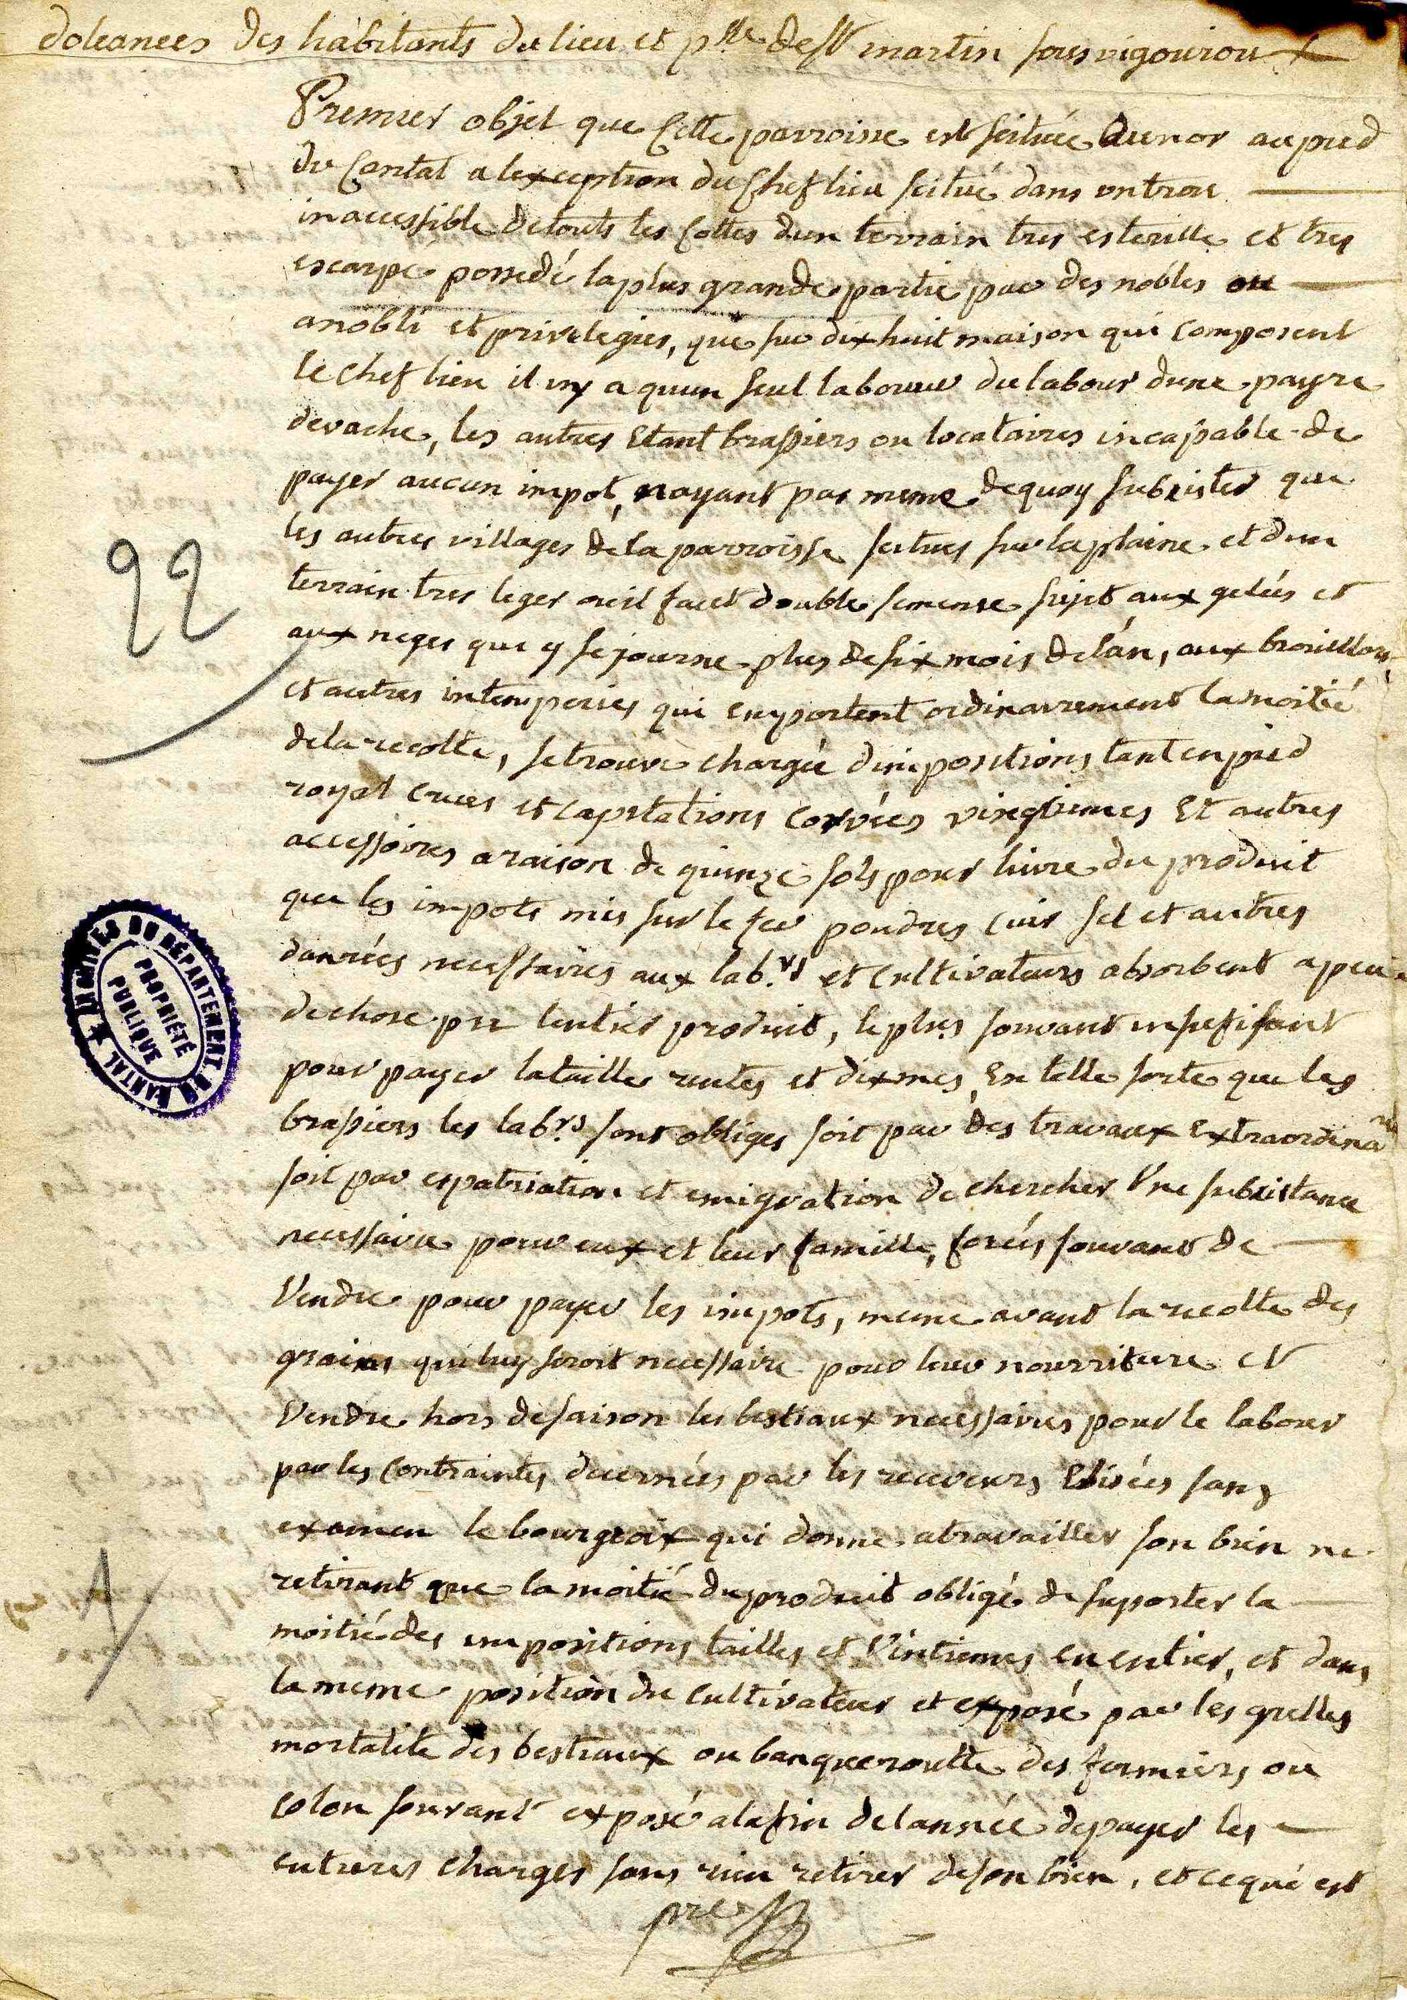 doleances des habitants du lieu et p.lle de St martin sous vigouroux
Premier objet que Cette parroisse est scituée au nor au pied
du Cantal a lexception du Chef lieu scitué dans un trou
inaccessible de touts les Cottes dun terrain tres esterille et tres
escarpe possedé la plus grande partie par des nobles ou
anobli et privilegies, que sur dix huit maison qui composent
le chef lieu il ny a quun seul laboureur du labour dune payre
de vache, les autres Etant brassiers ou locataires incapable de
payer aucun impot, nayant pas meme de quoy subsister que
les autres villages de la parroisse scitues sur la plaine et dun
terrain tres leger ou il faut double semense sujet aux gelées et
aux neges que y sejourne plus de six mois de lán, aux brouillons,
et autres intemperies qui emportent ordinairement la moitié
de la recolte, se trouve chargée dimpositions tant en pied
royal crues et capitations corvées vingtiemes Et autres
accessoires a raison de quinze sols pour livre du produit
que les impots mis sur le fer poudres cuir sel et autres
danrées necessaires aux lab.rs et cultivateurs absorbent a peu
de chose pre lentier produit, le plus souvant insufisant
pour payer la taille rentes et dixmes, En telle sorte que les
brassiers les lab.rs sont obliges soit par des travaux Extraordinaires
soit par expatriation et emigration de chercher Une subsistance
necessaire pour eux et leur famille, forcés souvant de
Vendre pour payer les impots, meme avant la recolte des
grains qui luy seroit necessaire pour leur nourriture et
Vendre hors de saison les bestiaux necessaires pour le labour
par les contraintes decernées par les receveurs sans
examen le bourgeoix qui donne a travailler son bien ne
retirant que la moitié du produit obligé de suporter la
moitié des impositions tailles et Vintiemes en entier, et dans
la meme position du cultivateur et exposé par les grelles
mortalite des bestiaux ou banqueroutte des fermiers ou
colon souvant exposé a la fin de lannée de payer les
entieres charges sans rien retirer de son bien, et ce qui est
pre
22
A
ARCHIVES DU DÉPARTEMENT DU CANTAL
PROPRIÉTÉ
PUBLIQUE